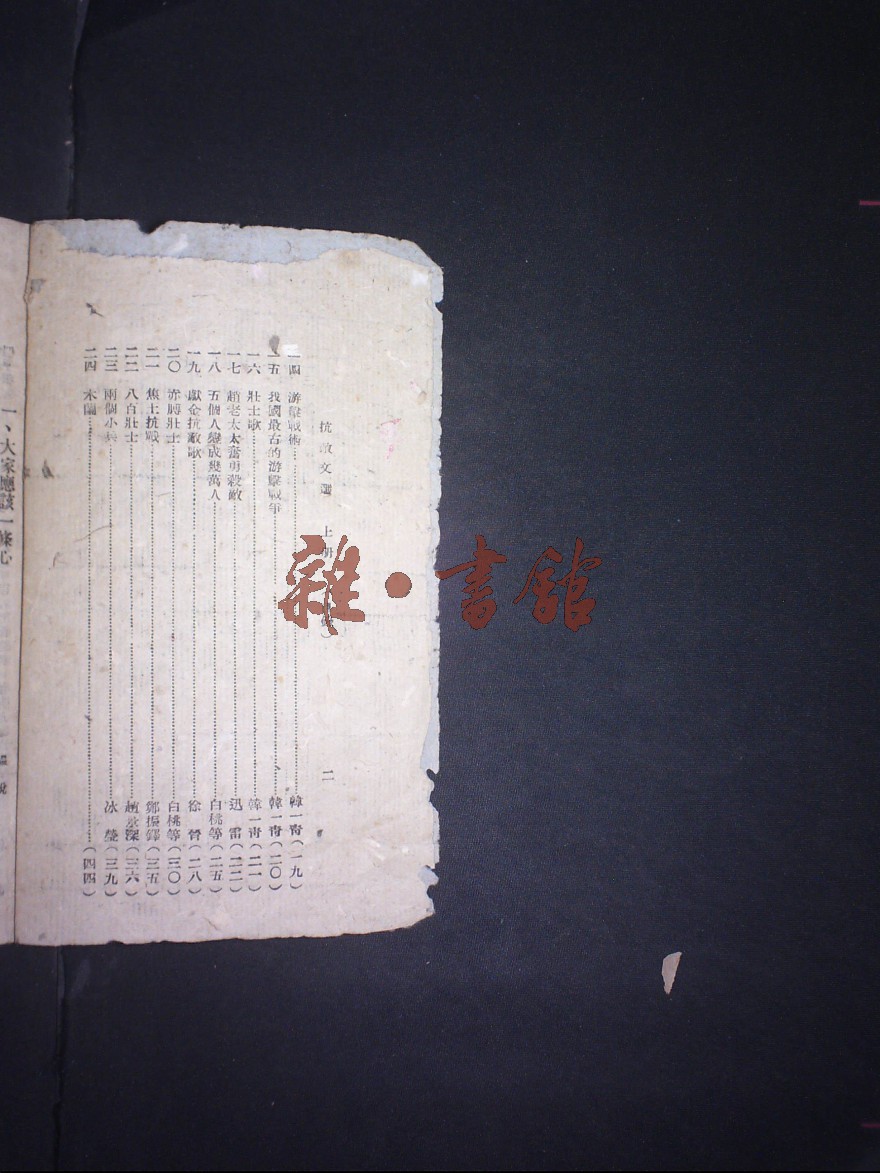 抗敵文選 上冊 二
一四 游擊戰術 韓一青（一九）
一五 我國最古的游擊戰爭 韓一青（二〇）
一六 壯士歌 韓一青（二一）
一七 趙老太太奮勇殺敵 迅雷（二二）
一八 五個人變成幾萬人 白桃等（二五）
一九 獻金抗敵歌 徐晉（二八）
二〇 赤膊壯士 白桃等（三〇）
二一 焦土抗戰 鄭振鐸（三五）
二二 八百壯士 趙景深（三六）
二三 兩個小兵 冰瑩（三九）
二四 木蘭（四四）
一、大家應該一條心
雜·書館